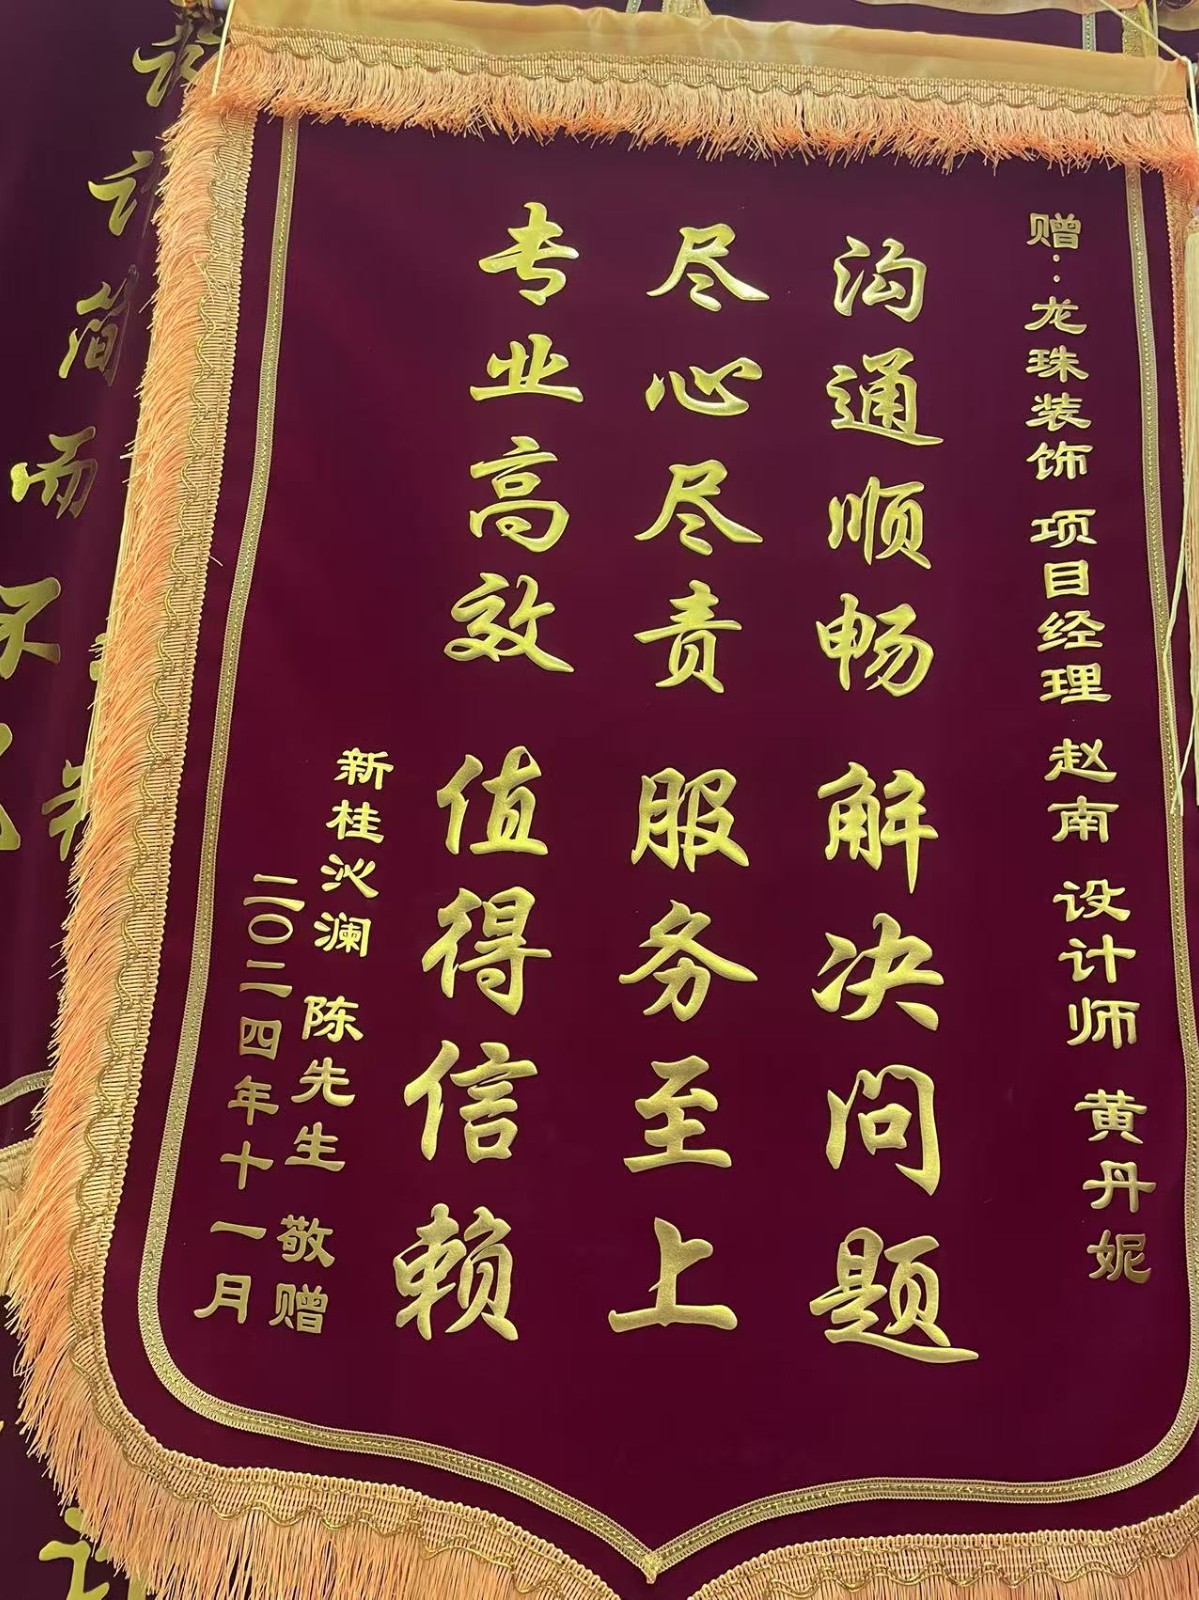 赠：龙珠装饰 项目经理 赵南 设计师 黄丹妮
沟通顺畅 解决问题
尽心尽责 服务至上
专业高效 值得信赖
新桂沁澜 陈先生 敬赠
二〇二四年十一月
简而不